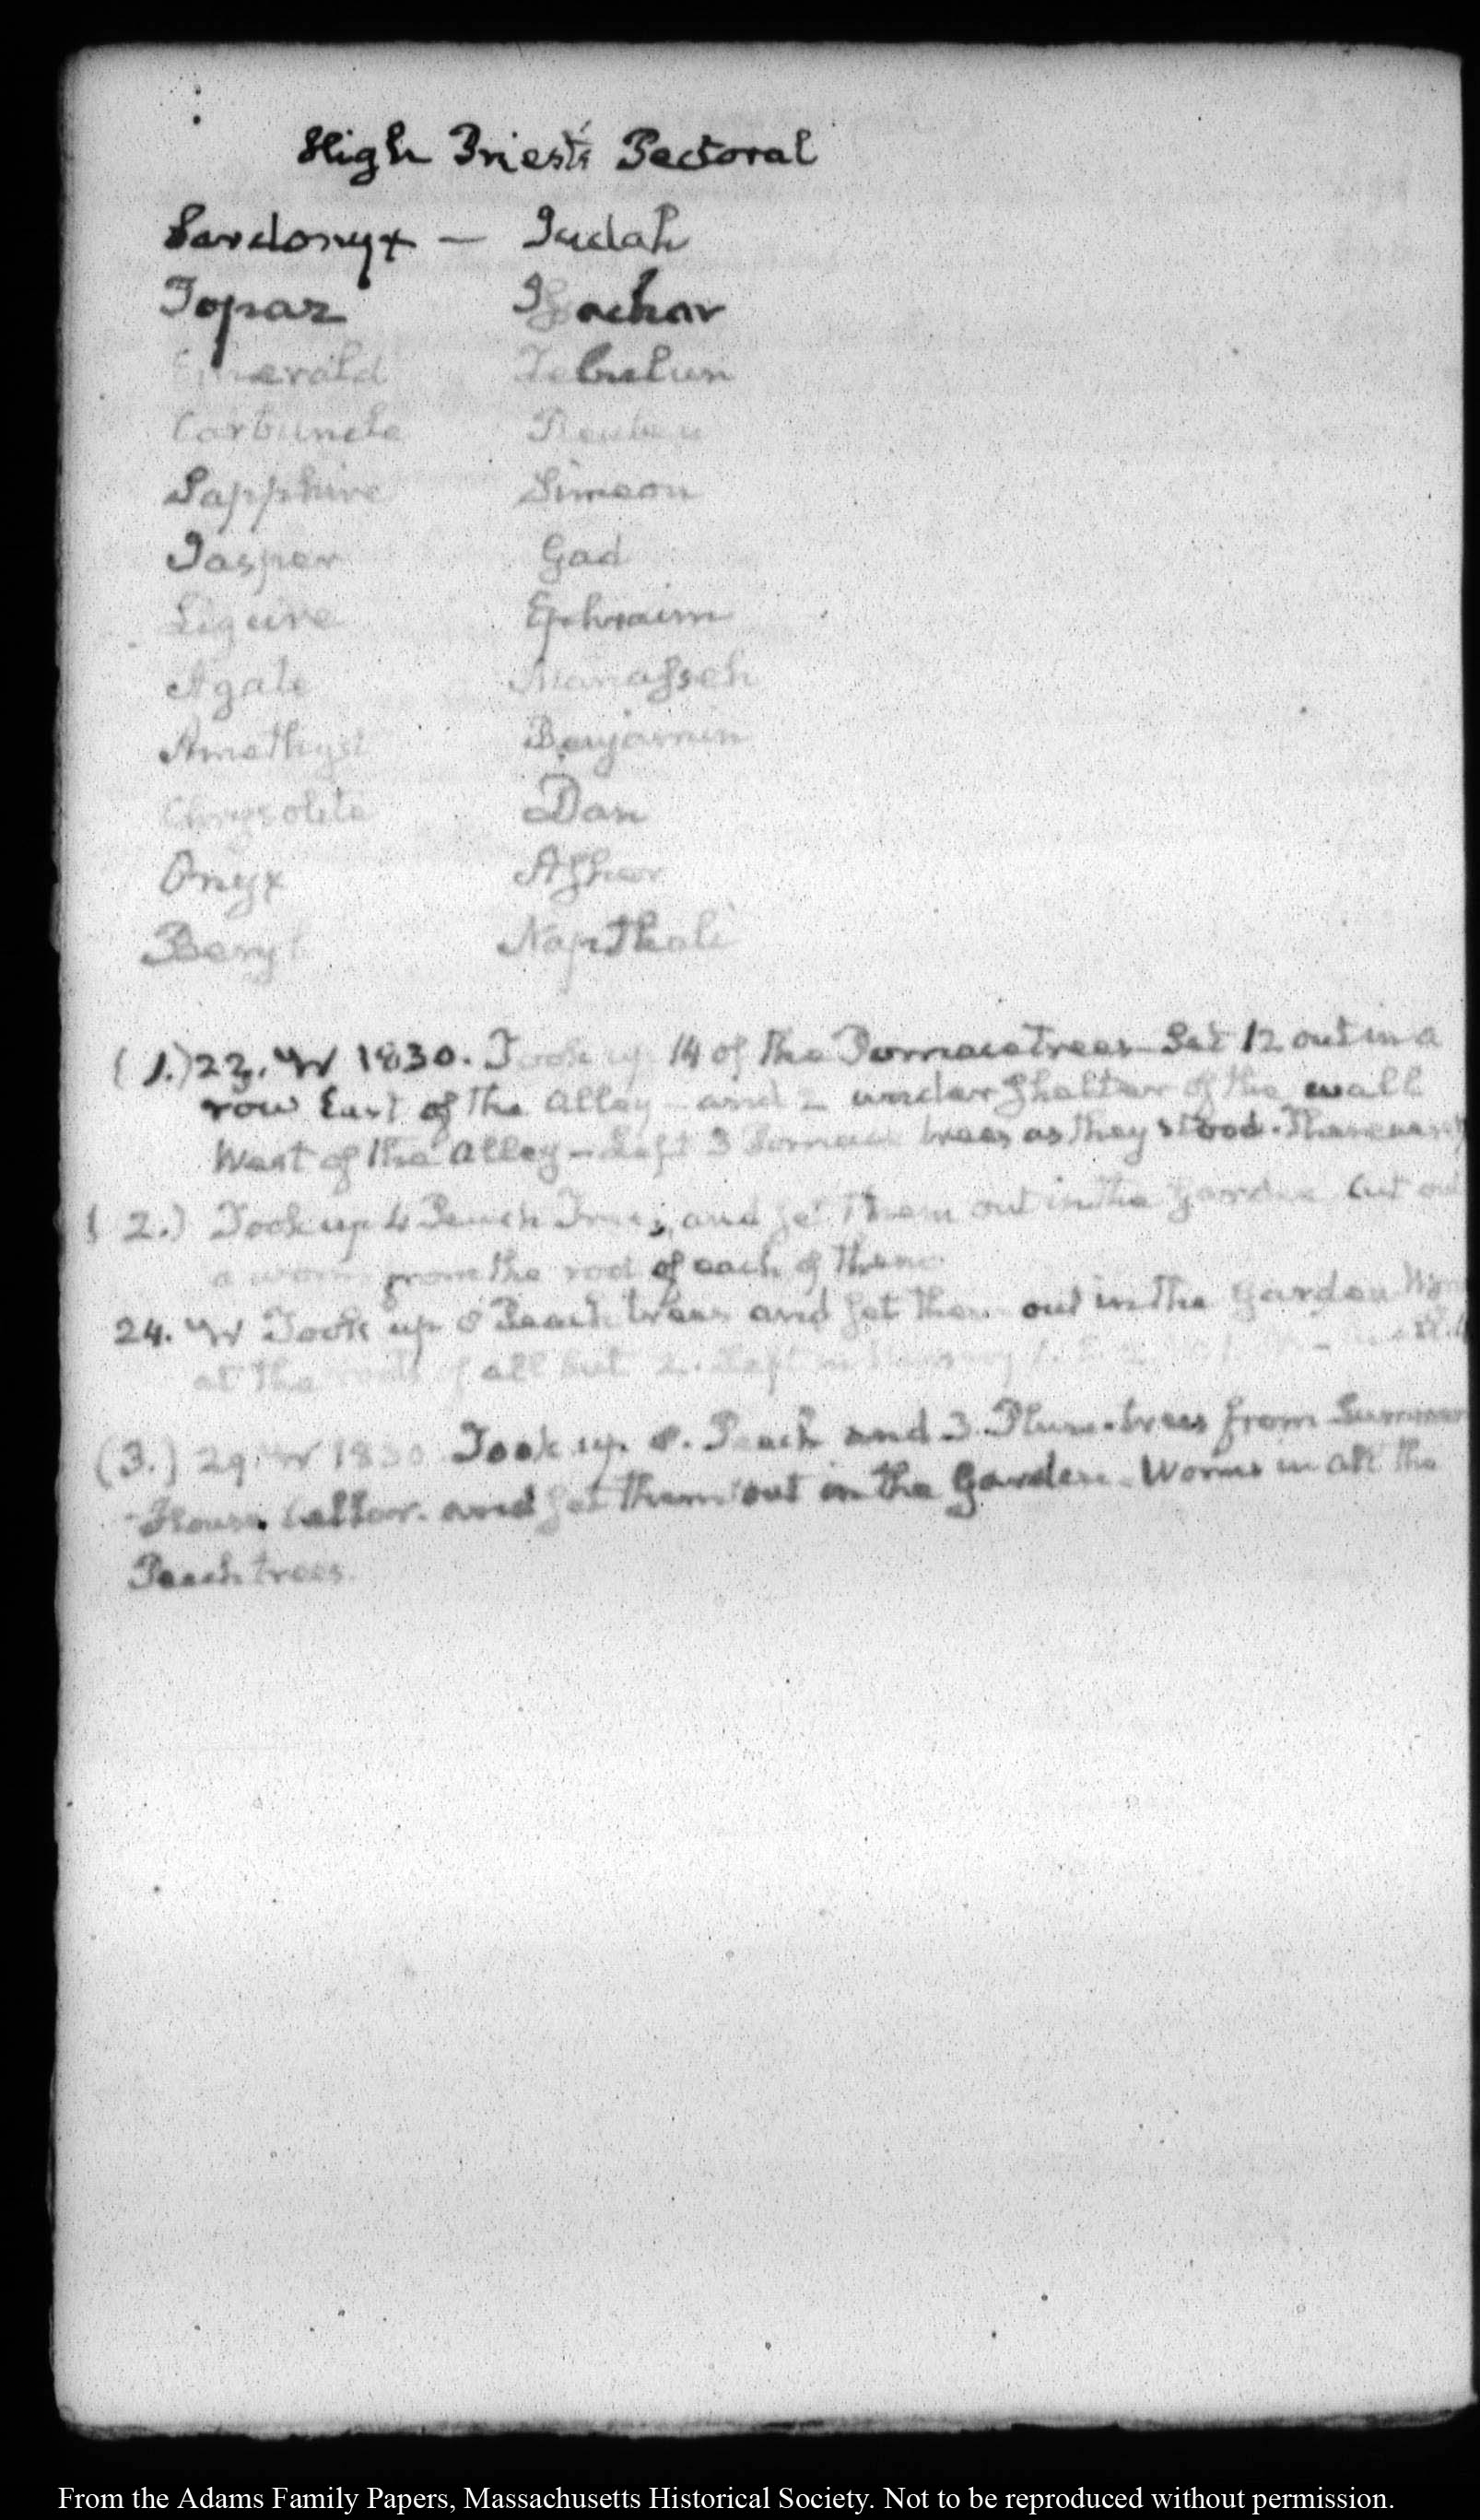 High Priest's Pectoral
Sardonyx — Judah
Topaz Issachar
Emerald Zebulun
Carbuncle Reuben
Sapphire Simeon
Jasper Gad
Ligure Ephraim
Agate Manasseh
Amethyst Benjamin
Chrysolite Dan
Onyx Asher
Beryl Napthali
(1.) 22. IV 1830. Took up 14 of the Pomace trees Set 12 out in a
row East of the Alley - and 2 under shelter of the wall
West of the Alley - Left 3 Pomace trees as they stood. There were
(2.) Took up 4 Peach Trees, and set them out in the Garden Cut out
a worm from the root of each of them
24. IV Took up 8 Peach trees and set them out in the Garden
at the roots of all but 2. Left in
(3.) 29. IV 1830 Took up 8. Peach and 3. Plum-trees from Summer
House Cellar. and set them out in the Garden. Worms in all the
Peach trees.
From the Adams Family Papers, Massachusetts Historical Society. Not to be reproduced without permission.